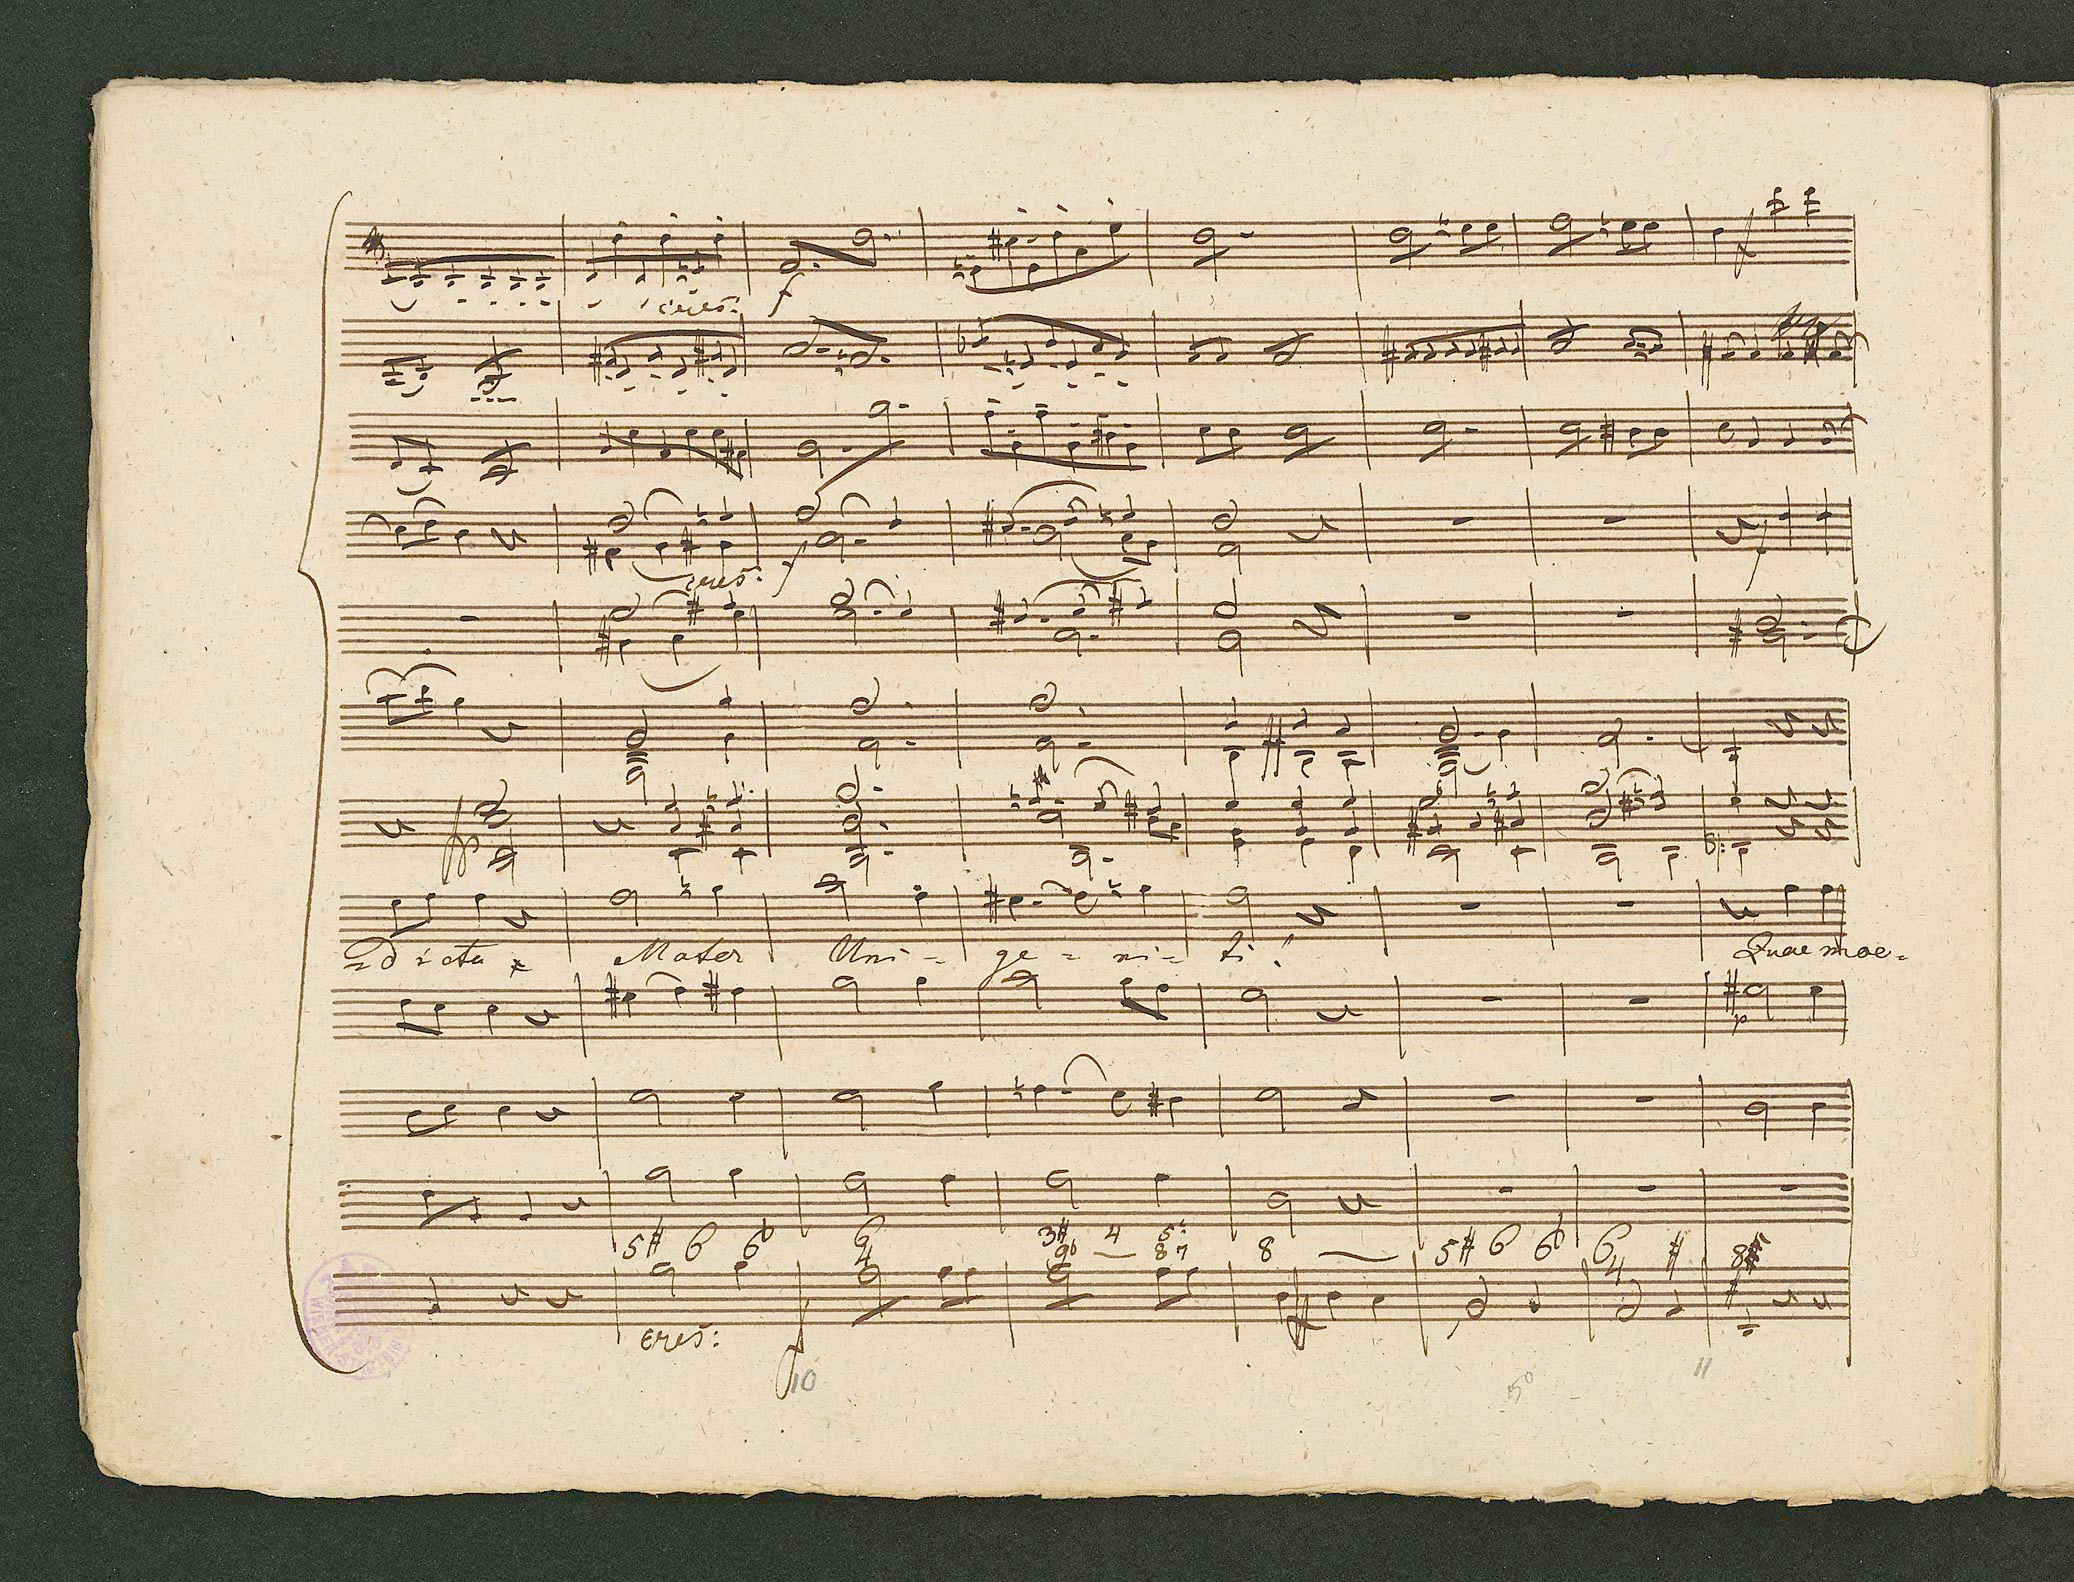 cres:
f
cres:
f
f
f
fp
= dicta Mater Uni = ge = ni = ti! Quae moe =
p
5# 6 6♭ 6 3# 4 5♮
4 9♭ — 8 7 8 — 5# 6 6♭ 6 4 # 8#
cres: f
10 50 11